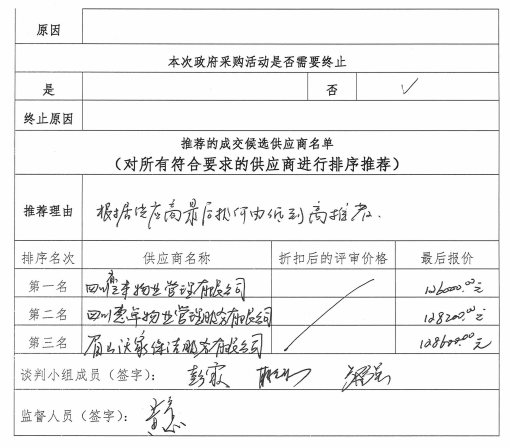 原因
本次政府采购活动是否需要终止
是 否 √
终止原因
推荐的成交候选供应商名单
(对所有符合要求的供应商进行排序推荐)
推荐理由 根据供应商最后报价由低到高推荐.
排序名次 供应商名称 折扣后的评审价格 最后报价
第一名 四川 丰物业管理有限公司 126000.00元
第二名 四川惠年物业管理服务有限公司 128200.00元
第三名 眉山沃家保洁服务有限公司 128600.00元
谈判小组成员(签字): 彭霞
监督人员(签字):